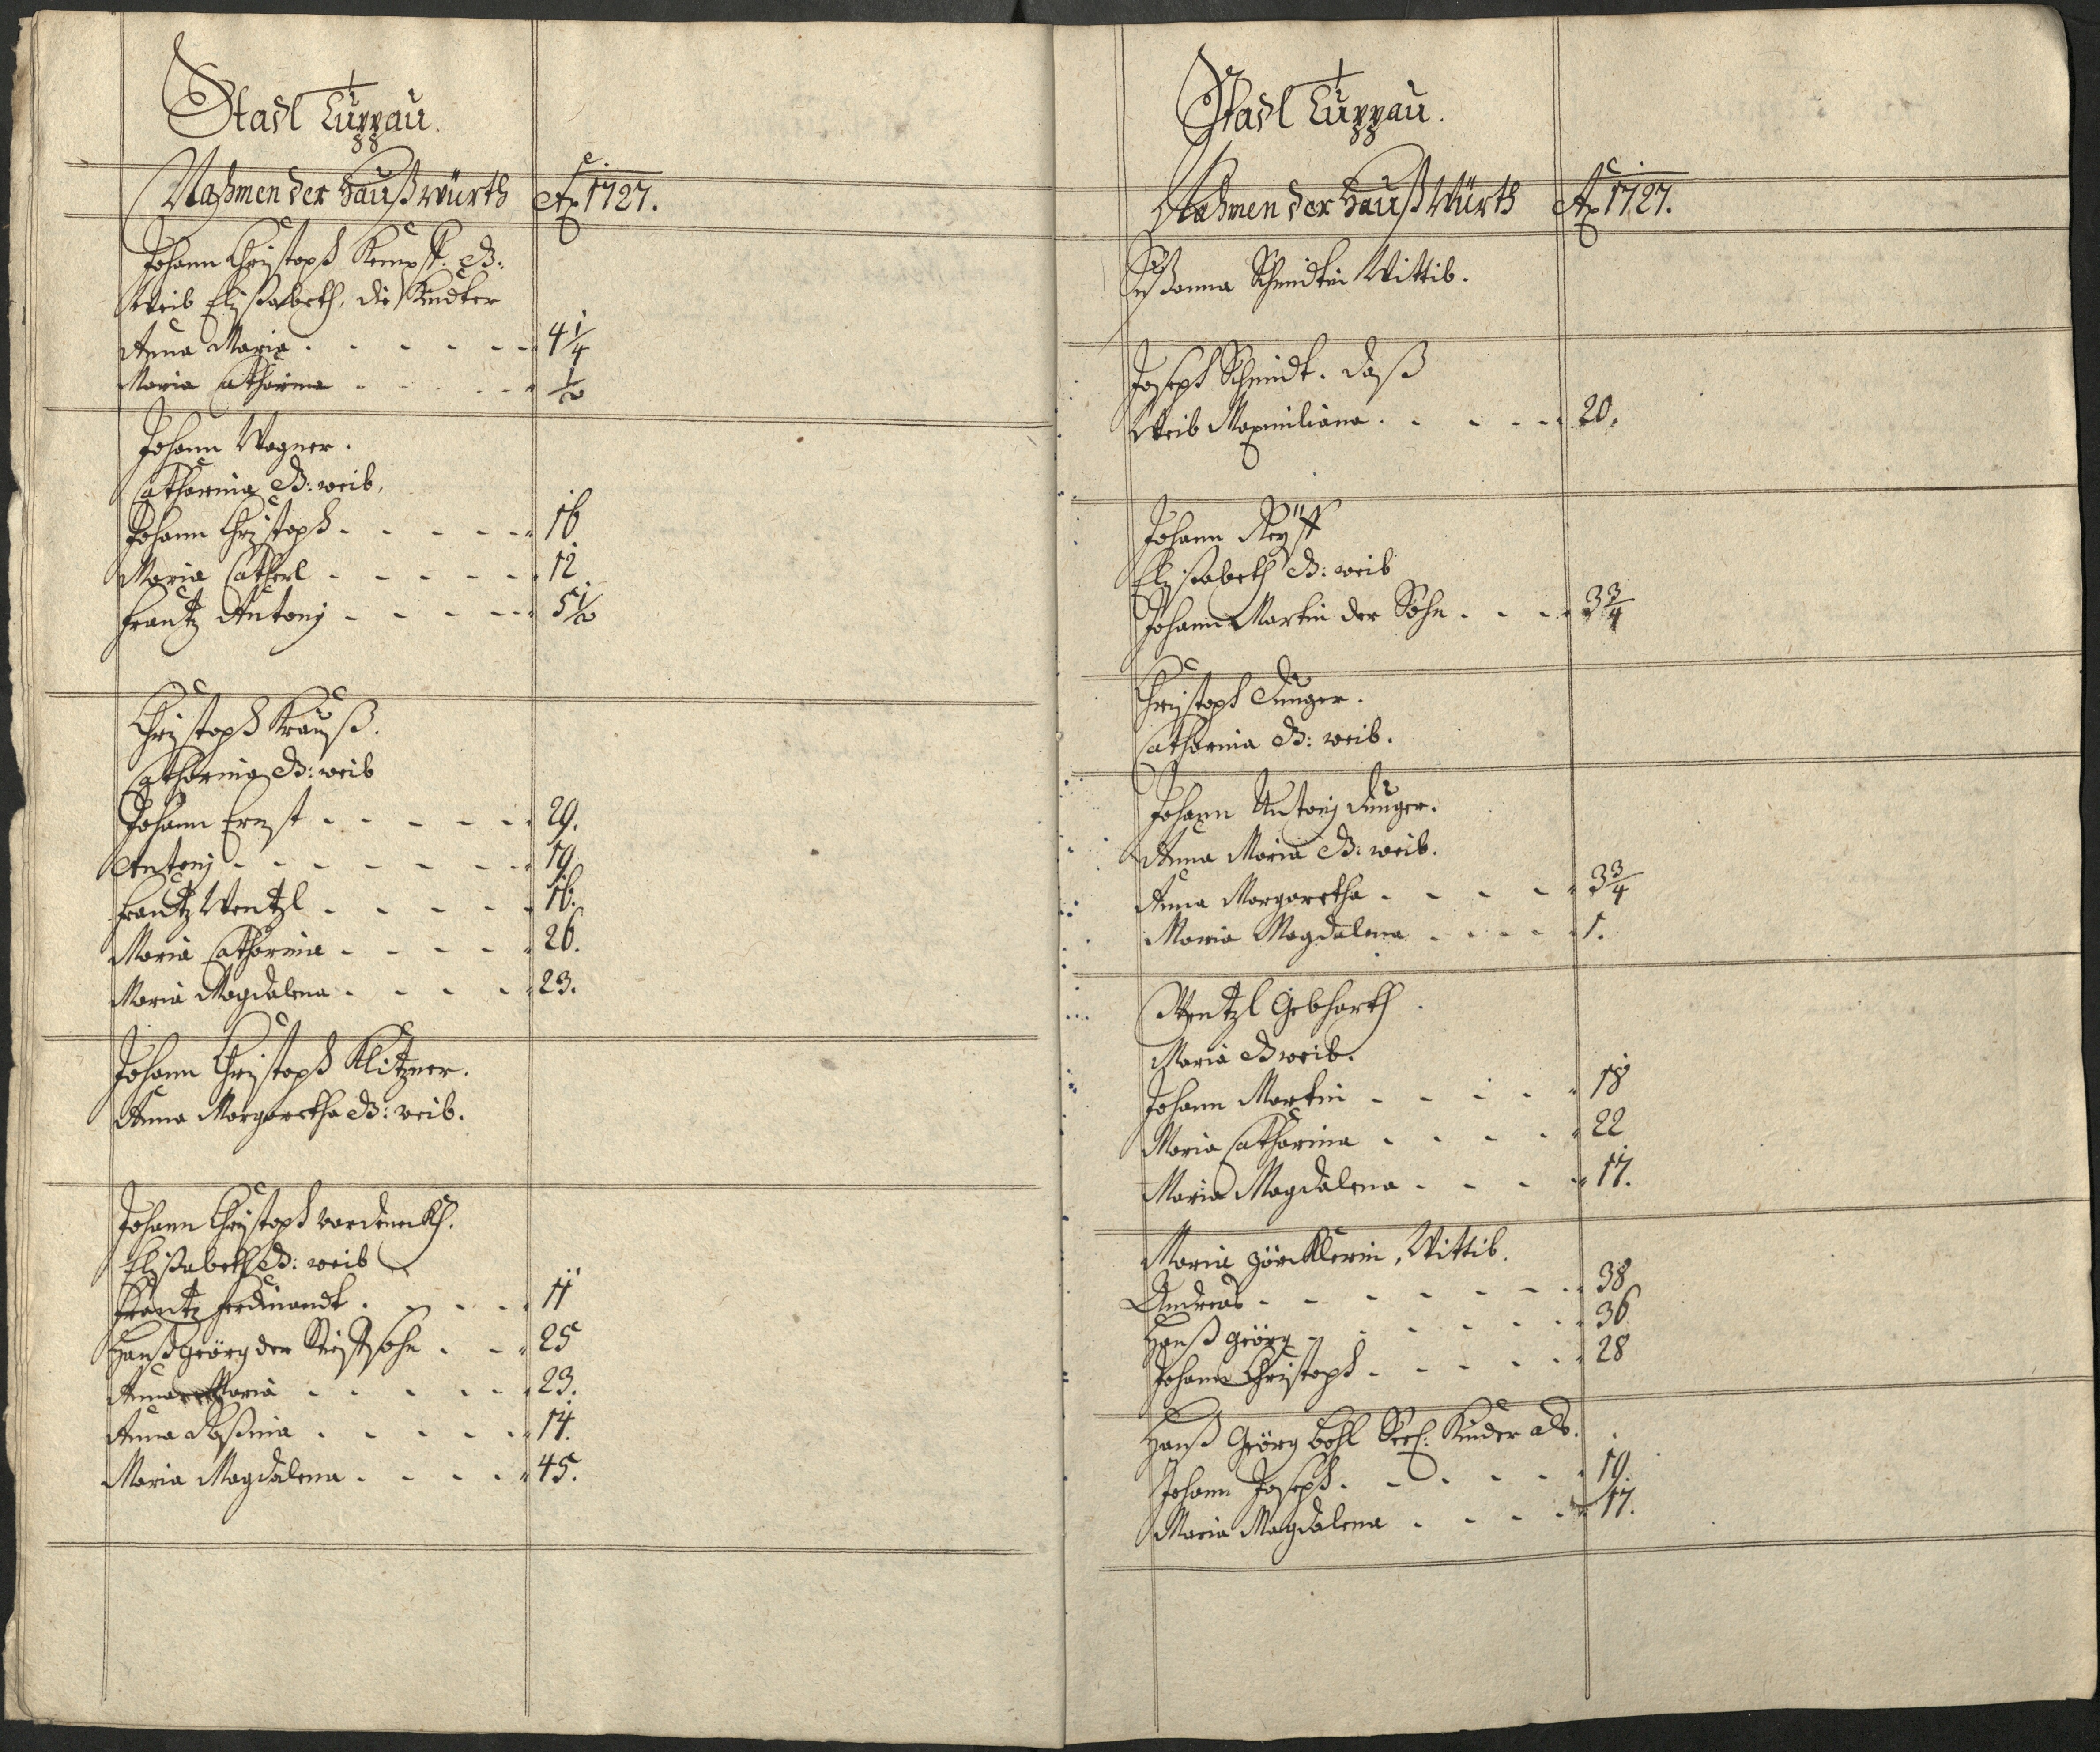 Stadt Luppau.
Nahmen der Haußwürth Aõ 1727.
Johann Christoph Kempff: B:
Weib Elisabeth, die Kindter
Anna Maria 4 1/4
Maria Catharina 1/2
Johann Wagner.
Catharina B: weib,
Johann Christoph 16
Maria Catherl 12
Frantz Antonj 5 1/2
Christoph Krauß.
Catharina B: weib
Johann Ernst 29.
Antonj 19.
Frantz Wentzl 16.
Maria Catharina 26.
Maria Magdalena 23.
Johann Christoph Klitzner.
Anna Margaretha B: weib.
Johann Christoph
Elisabeth B: weib
Frantz Ferdinandt 11
Hanß Geörg der Stiefsohn 25
Anna Maria 23.
Anna Rosina 14.
Maria Magdalena 45.
Stadt Luppau.
Nahmen der Hauß Würth Aõ 1727.
Susanna Schmidtin Wittib.
Joseph Schmidt. daß
Weib Maximiliana 20.
Johann
Elisabeth B: weib
Johann Martin der Sohn 3 3/4
Christoph Unger.
Catharina B: weib.
Johann Antonj Unger.
Anna Maria B: weib.
Anna Margaretha 3 3/4
Maria Magdalena 1.
Wentzl Gebharth
Maria B weib.
Johann Martin 18
Maria Catharina 22
Maria Magdalena 17.
Maria Wittib.
Andreas 38
Hanß Geörg 36
Johann Christoph 28
Hanß Geörg Bohl Seel: Kinder als.
Johann Joseph 19.
Maria Magdalena 17.